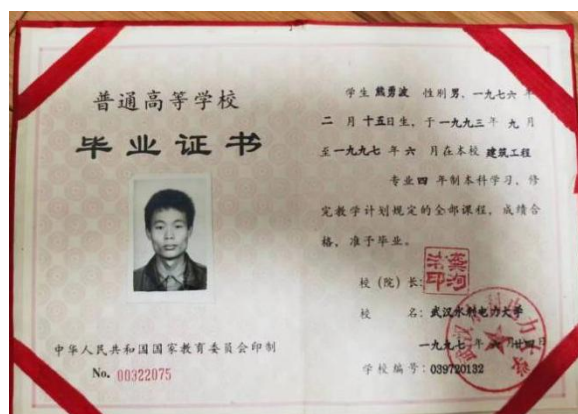 普通高等学校
毕业证书
中华人民共和国国家教育委员会印制
No. 00322075
学生 熊勇波 性别 男，一九七六 年
二 月 十五日生，于一九九三年 九 月
至一九九七 年 六 月在本校 建筑工程
专业 四 年制本科学习，修
完教学计划规定的全部课程，成绩合
格，准予毕业。
校（院）长：
校 名：武汉水利电力大学
一九九七 年 六 月 廿四日
学校编号：039720132